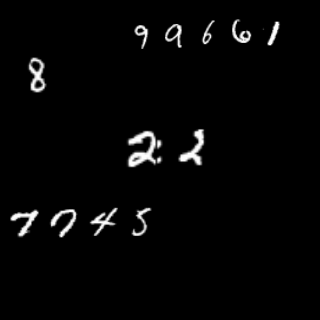 99661
8
22
7745